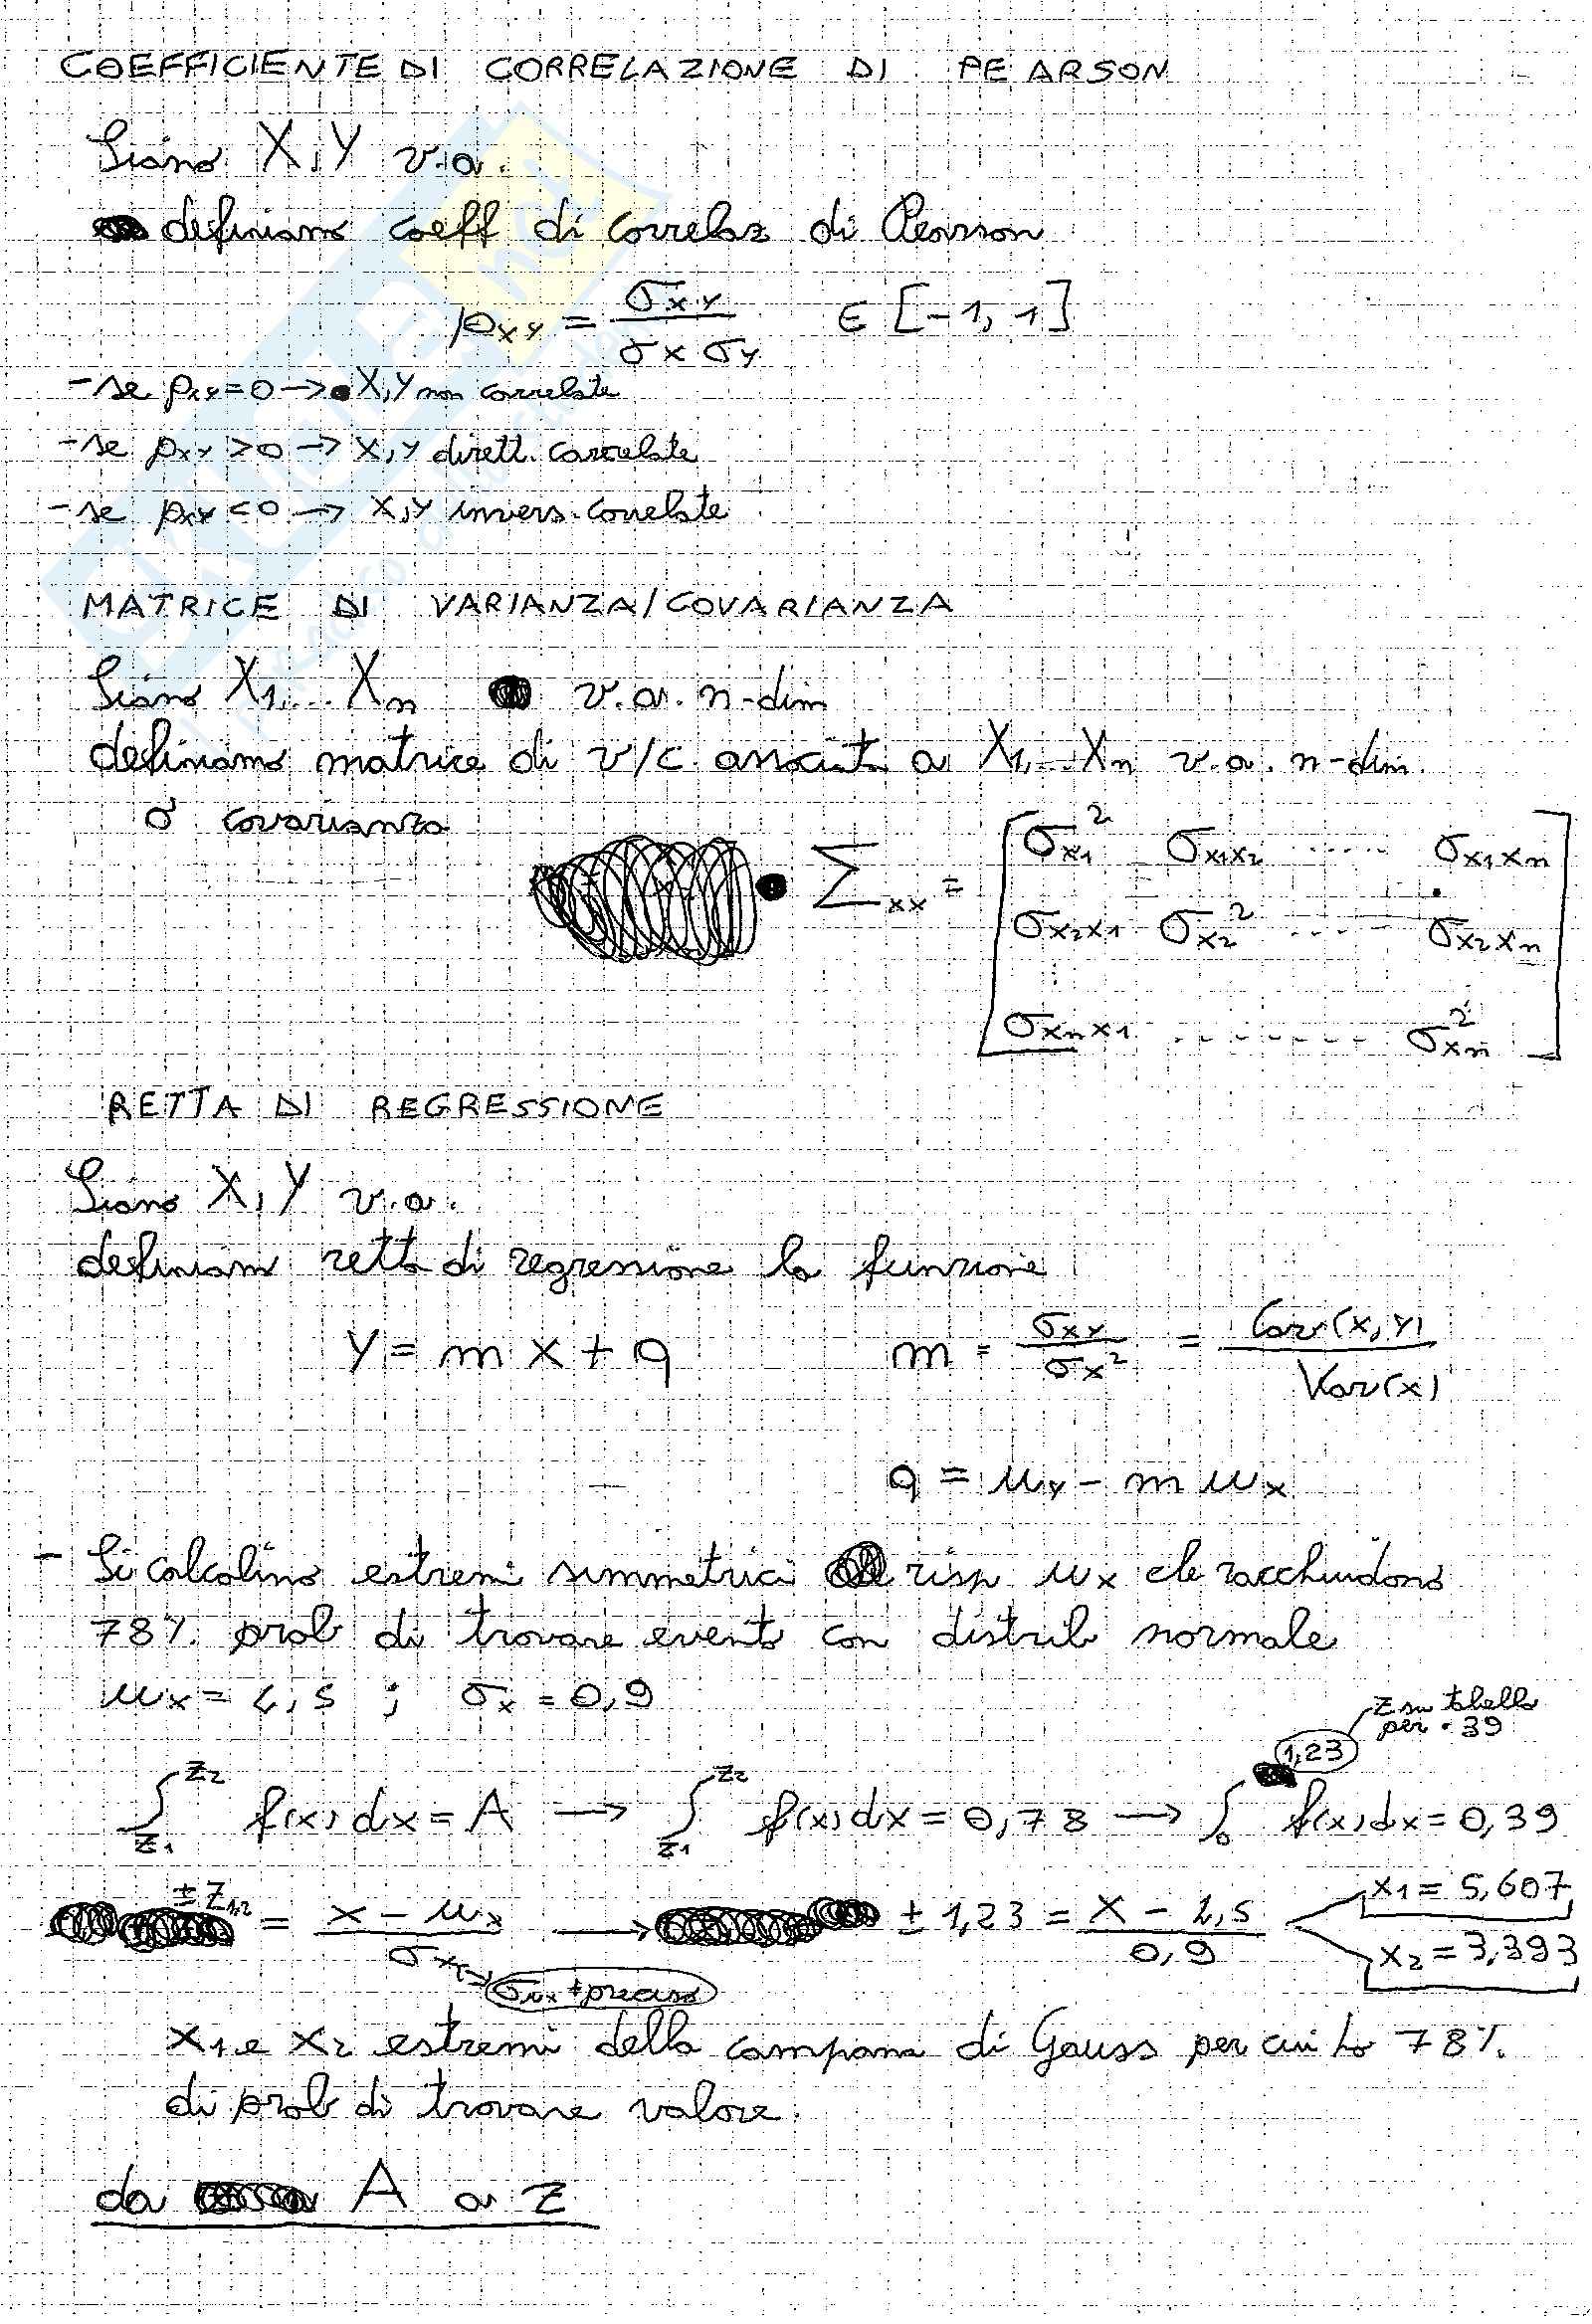 COEFFICIENTE DI CORRELAZIONE DI PEARSON
Siano X, Y v.a.
definiamo coeff di correlaz di Pearson
ρxy = σxy / σx σy ∈ [-1, 1]
- se ρxy = 0 → X, Y non correlate
- se ρxy > 0 → X, Y dirett. correlate
- se ρxy < 0 → X, Y invers. correlate
MATRICE DI VARIANZA/COVARIANZA
Siano X1, ... Xn v.a. n-dim
definiamo matrice di v/c associata a X1, ... Xn v.a. n-dim.
o covarianza
Σxx = [ σx1² σx1x2 ..... σx1xn
σx2x1 σx2² ..... σx2xn
⋮
σxnx1 ....... σxn² ]
RETTA DI REGRESSIONE
Siano X, Y v.a.
definiam retta di regressione la funzione
Y = m X + q m = σxy / σx² = Cov(X, Y) / Var(X)
q = μy - m μx
- Si calcolino estremi simmetrici risp μx che racchiudono
78% prob di trovare evento con distrib normale
μx = 4,5 ; σx = 0,9
z su tabella
per .39
∫z1^z2 f(x) dx = A → ∫z1^z2 f(x) dx = 0,78 → ∫0^1,23 f(x) dx = 0,39
± z1,2 = (x - μx) / σx → ± 1,23 = (x - 4,5) / 0,9 x1 = 5,607
x2 = 3,393
σμx + preciso
x1 e x2 estremi della campana di Gauss per cui ho 78%
di prob di trovare valore.
da A a z